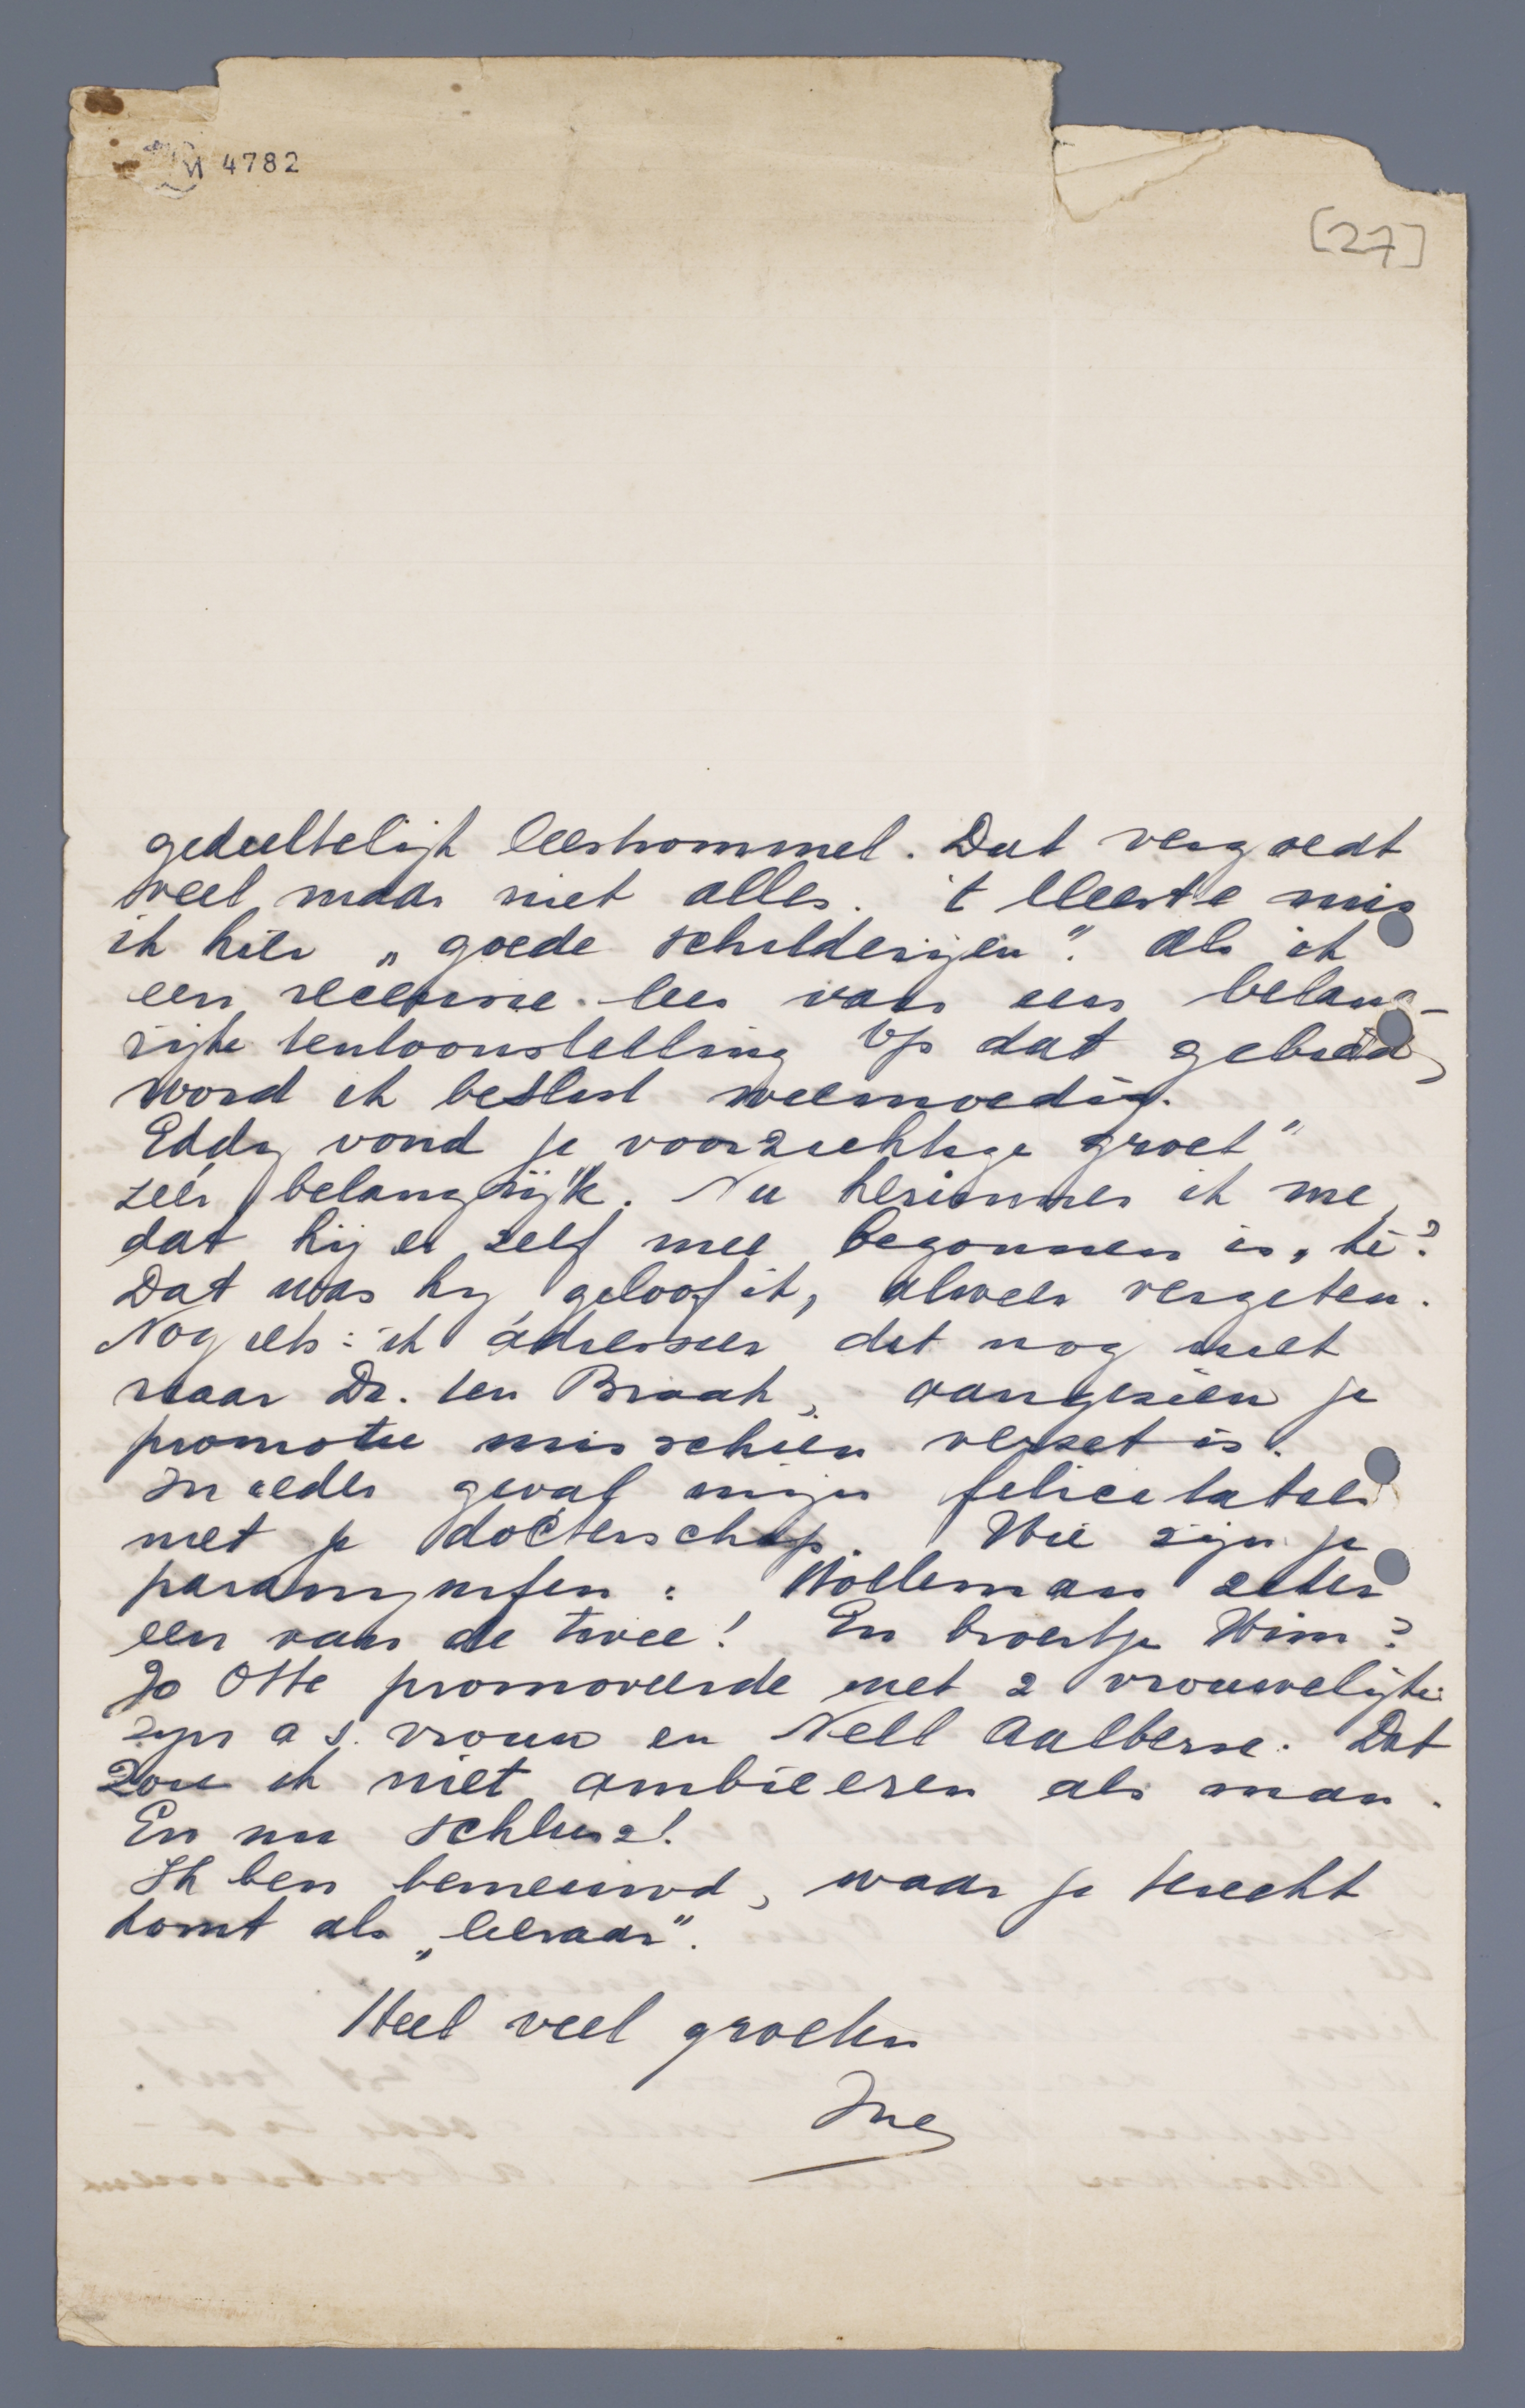 4782
[27]
gedeeltelijk leestrommel. Dat vergoedt
veel, maar niet alles. 't Meeste mis
ik hier „goede schilderijen". Als ik
een recensie lees van een belang-
rijke tentoonstelling op dat gebied,
word ik beslist weemoedig.
Eddy vond je voorzichtige groet"
zéér belangrijk. Nu herinner ik me,
dat hij er zelf mee begonnen is, hè?
Dat was hij, geloof ik, alweer vergeten.
Nog iets: ik adresseer dit nog niet
naar Dr. ter Braak, aangezien je
promotie misschien verzet is.
In ieder geval mijn felicitaties
met je doctorschap. Wie zijn je
paranymfen: Holleman zeker
een van de twee! En broertje Wim?
Jo Otte promoveerde met 2 vrouwelijke:
zijn a s. vrouw en Nell Aalberse. Dat
zou ik niet ambieeren als man.
En nu schlusz!
Ik ben benieuwd, waar je terecht
komt als „leeraar".
Heel veel groeten
Ine